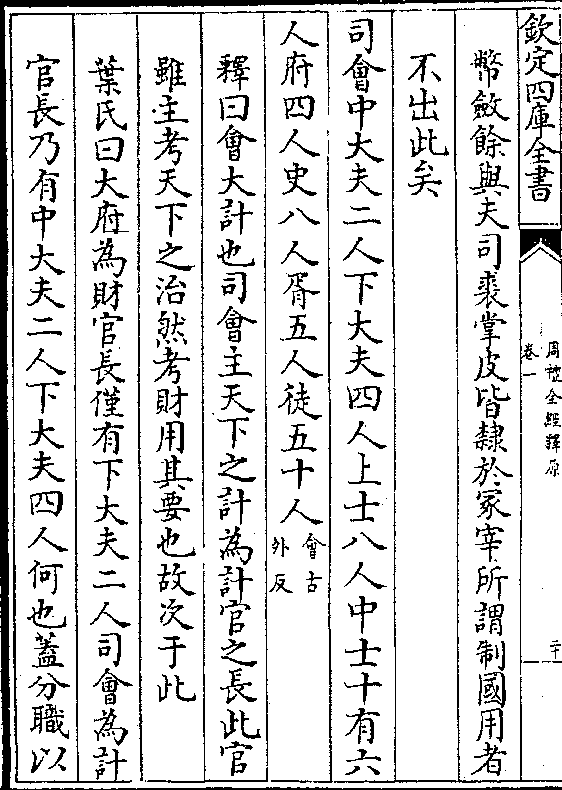 欽定四庫全書
周禮全經釋原
卷一
二十
幣斂餘與夫司裘掌皮皆隸於冢宰所謂制國用者
不出此矣
司會中大夫二人下大夫四人上士八人中士十有六
人府四人史八人胥五人徒五十人會古外反
釋曰會大計也司會主天下之計為計官之長此官
雖主考天下之治然考財用其要也故次于此
葉氏曰大府為財官長僅有下大夫二人司會為計
官長乃有中大夫二人下大夫四人何也蓋分職以